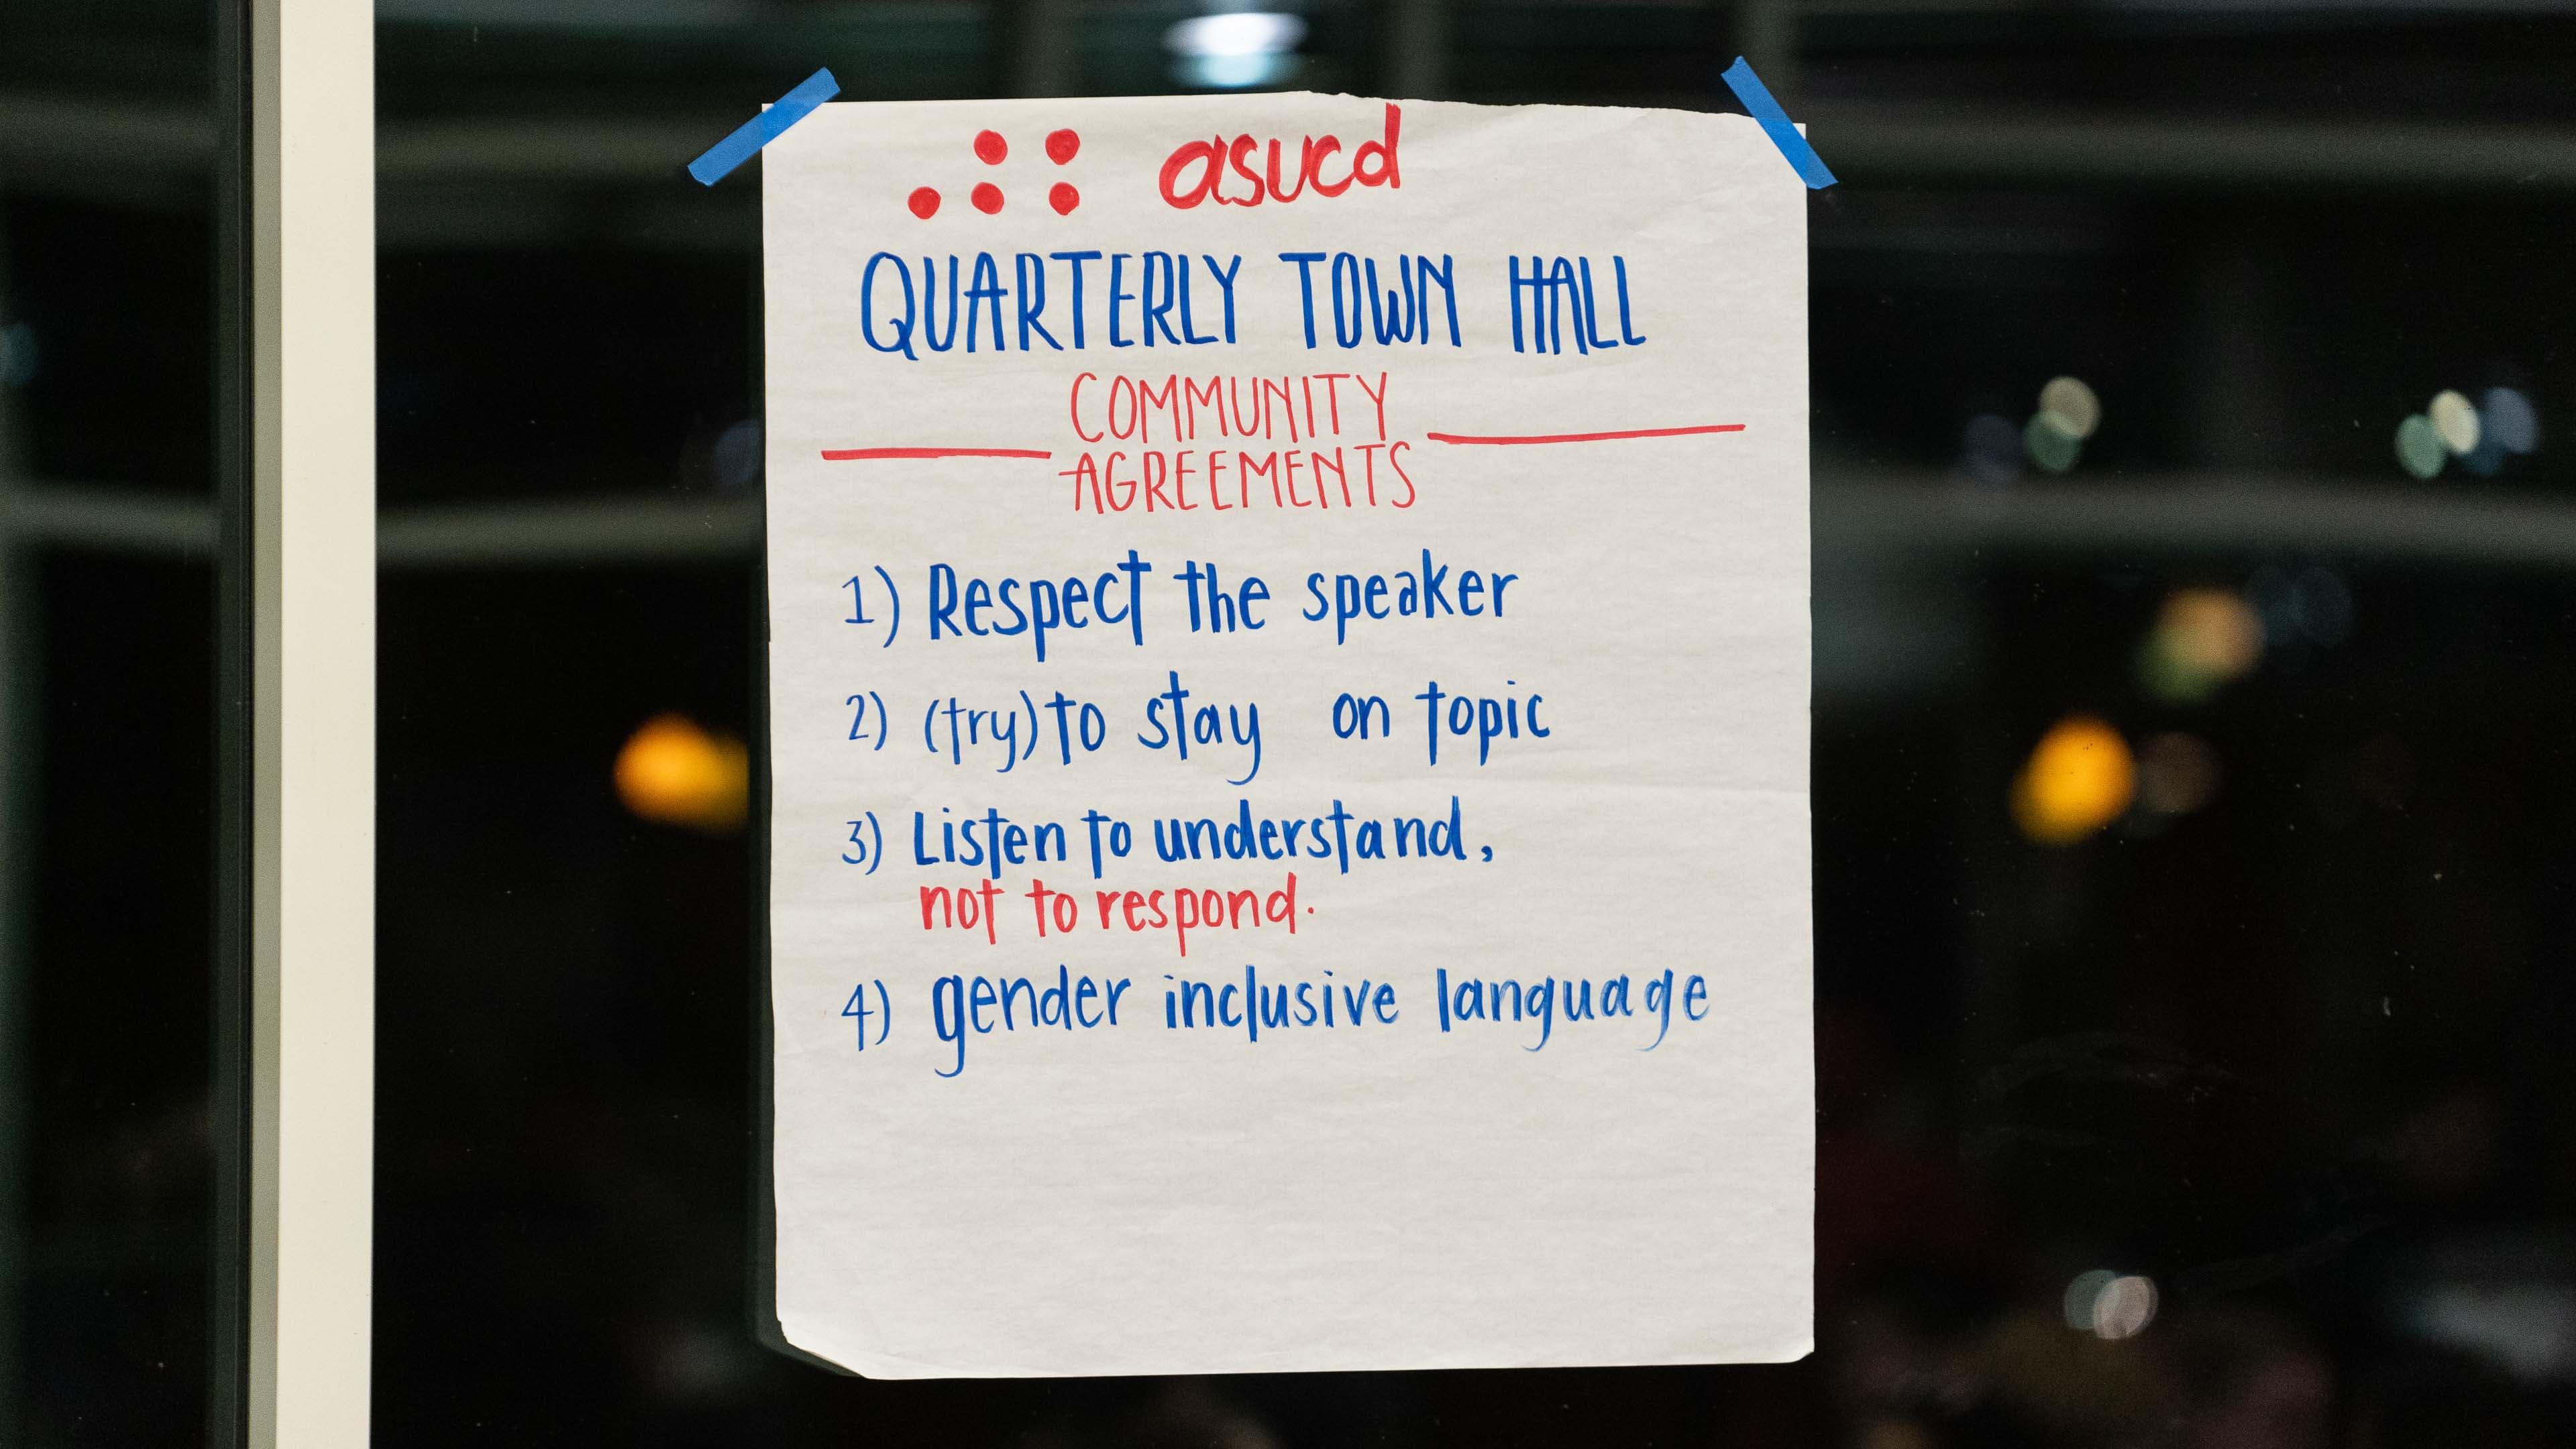 asucd
QUARTERLY TOWN HALL
COMMUNITY
AGREEMENTS
1) Respect the speaker
2) (try) to stay on topic
3) Listen to understand,
not to respond.
4) gender inclusive language